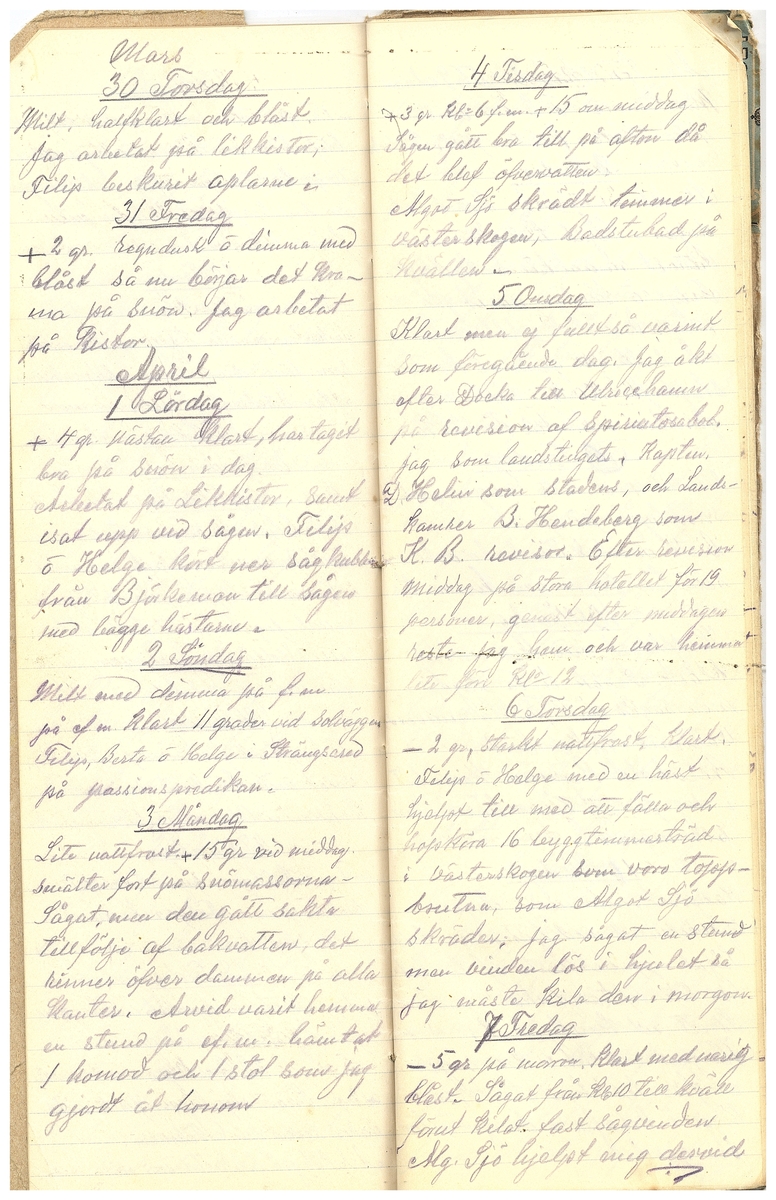 Mars
30 Torsdag
Milt, halfklart och blåst.
Jag arbetat på likkistor,
Filip beskurit aplarne
31 Fredag
+ 2 gr. regndusk ö dimma med
blåst så nu börjar det kra-
ma på snön. Jag arbetat
på Kistor.
April
1 Lördag
+ 4 gr. Nästan klart, har taget
bra på snön i dag.
Arbetat på Likkistor, samt
isat upp vid sågen. Filip
ö Helge kört ner sågkubbar
från Björkeman till sågen
med bägge hästarne.
2 Söndag
Milt med dimma på f.m
på ef.m. Klart 11 grader vid solväggen
Filip, Berta ö Helge i Strängsered
på passionspredikan.
3 Måndag
Lite nattfrost. + 15 gr vid middag.
smälter fort på snömassorna
Sågat, men den gått sakta
tillfölje af bakvatten, det
rinner öfver dammen på alla
Kanter. Arvid varit hemma
en stund på ef.m. hämtat
1 komod och 1 stol som jag
gjordt åt honom
4 Tisdag
+3 gr Kl= 6 f.m. +15 om middag
Sågen gått bra till på afton då
det blef öfvervatten
Algot Sjö skrädt timmer i
västerskogen, Badstubad på
kvällen
5 Onsdag
Klart men ej fullt så varmt
som föregående dag. Jag åkt
efter Docka till Ulricehamn
på revision af Spiritosabol.
Jag som landstingets, Kapten.
D Helin som stadens, och Lands-
kamrer B. Hendeberg som
K. B. revisor. Efter revision
middag på stora hotellet för 19
personer, genast efter middagen
reste jag hem och var hemma
lite förr Kl= 12
6 Torsdag
- 2 gr, starkt nattfrost, klart.
Filip ö Helge med en häst
hjelpt till med att fälla och
hopköra 16 byggtimmerträd
i västerskogen som voro topp-
brutna, som Algot Sjö
skräder, jag sågat en stund
men vinden lös i hjulet så
jag måste kila den i morgon.
7 Fredag
- 5 gr på morron. Klart med
blåst. Sågat från Kl=10 till kväll
först kilat fast sågvinden
Alg. Sjö hjelpt mig dervid